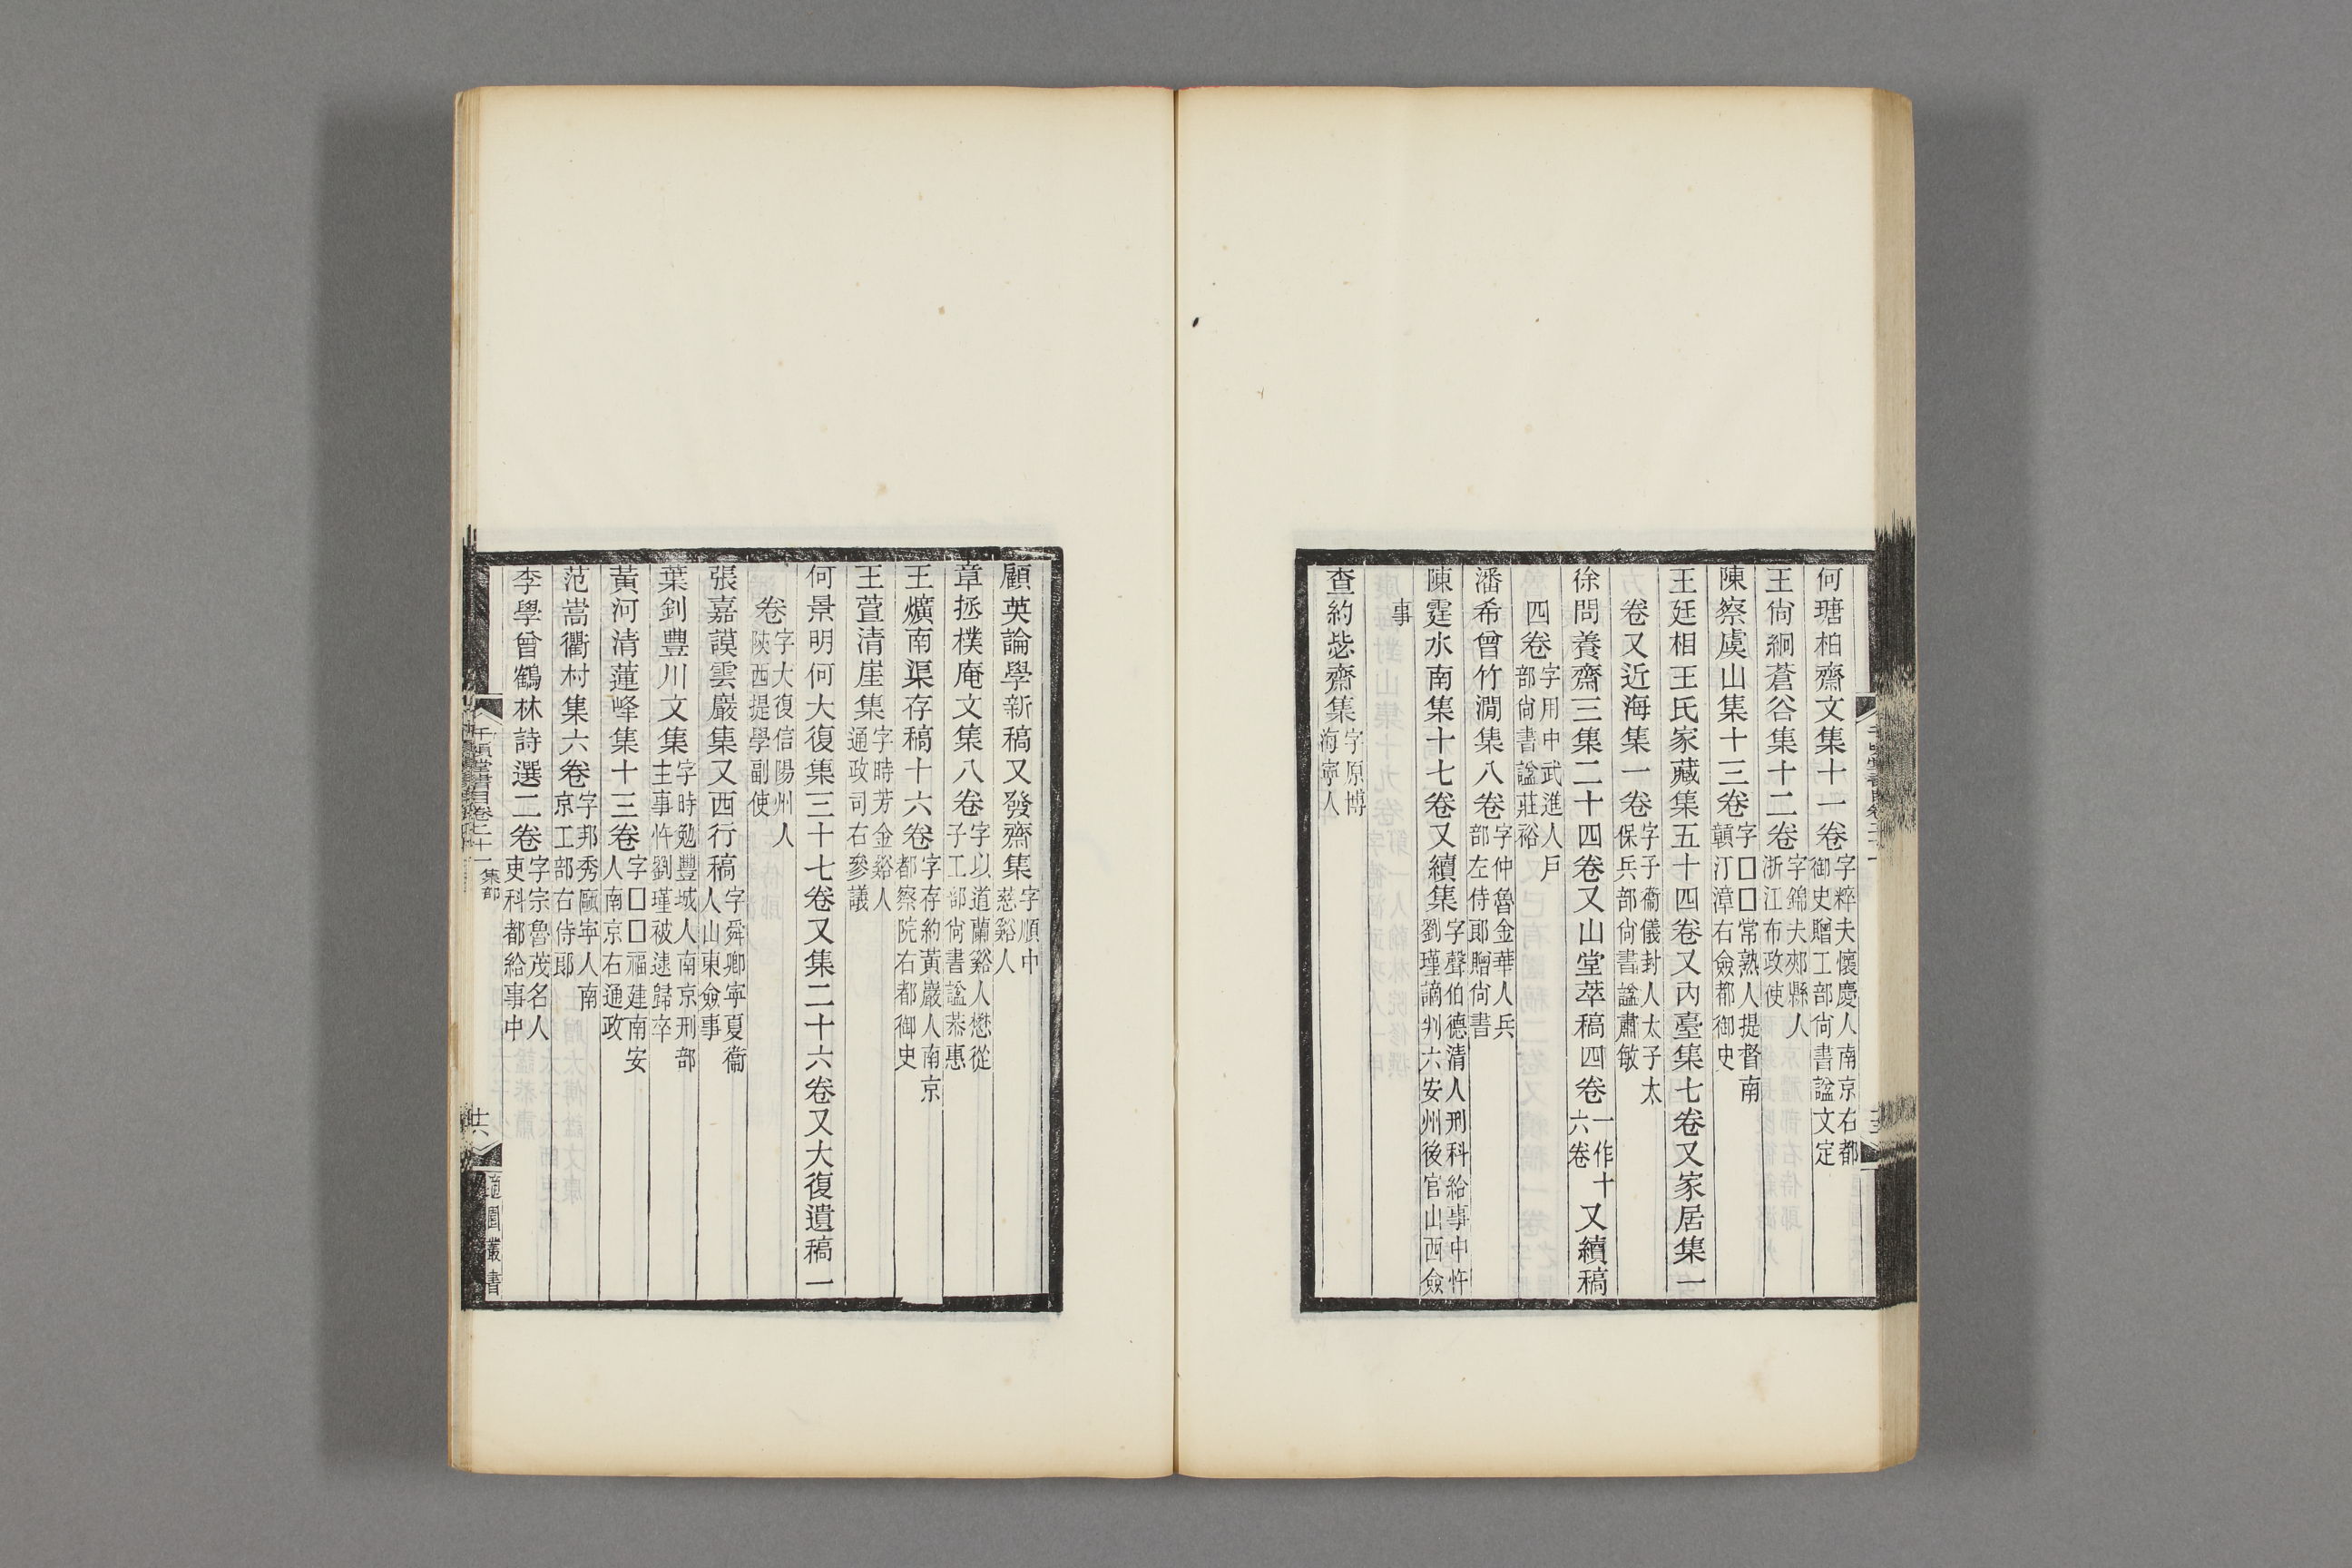 何瑭柏齋文集十一卷字粹夫懷慶人南京右都御史贈工部尙書諡文定
王尙絅蒼谷集十二卷字錦夫郟縣人浙江布政使
陳察虞山集十三卷字□□常熟人提督南贛汀漳右僉都御史
王廷相王氏家藏集五十四卷又內臺集七卷又家居集一
卷又近海集一卷字子衡儀封人太子太保兵部尙書諡肅敏
徐問養齋三集二十四卷又山堂萃稿四卷一作十六卷又續稿
四卷字用中武進人戶部尙書諡莊裕
潘希曾竹澗集八卷字仲魯金華人兵部左侍郞贈尙書
陳霆水南集十七卷又續集字聲伯德淸人刑科給事中忤劉瑾謫判六安州後官山西僉
事
查約毖齋集字原博海寧人
顧英論學新稿又發齋集字順中慈谿人
章拯樸庵文集八卷字以道蘭谿人懋從子工部尙書諡恭惠
王爌南渠存稿十六卷字存約黃巖人南京都察院右都御史
王萱清崖集字時芳金谿人通政司右參議
何景明何大復集三十七卷又集二十六卷又大復遺稿一
卷字大復信陽州人陝西提學副使
張嘉謨雲巖集又西行稿字舜卿寧夏衞人山東僉事
葉釗豐川文集字時勉豐城人南京刑部主事忤劉瑾被逮歸卒
黃河清蓮峰集十三卷字□□福建南安人南京右通政
范嵩衢村集六卷字邦秀甌寧人南京工部右侍郞
李學曾鶴林詩選二卷字宗魯茂名人吏科都給事中
千頃堂書目卷二十一 集部
十六
適園叢書